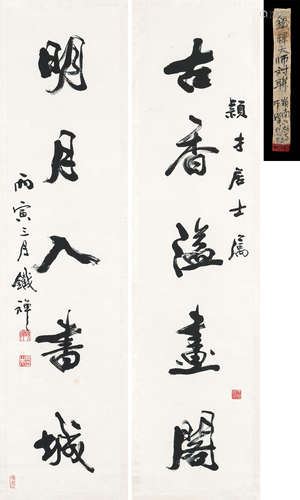 古香溢畫閣
穎才居士屬
明月入書城
丙寅三月鐵禪
鐵禪大師對聯